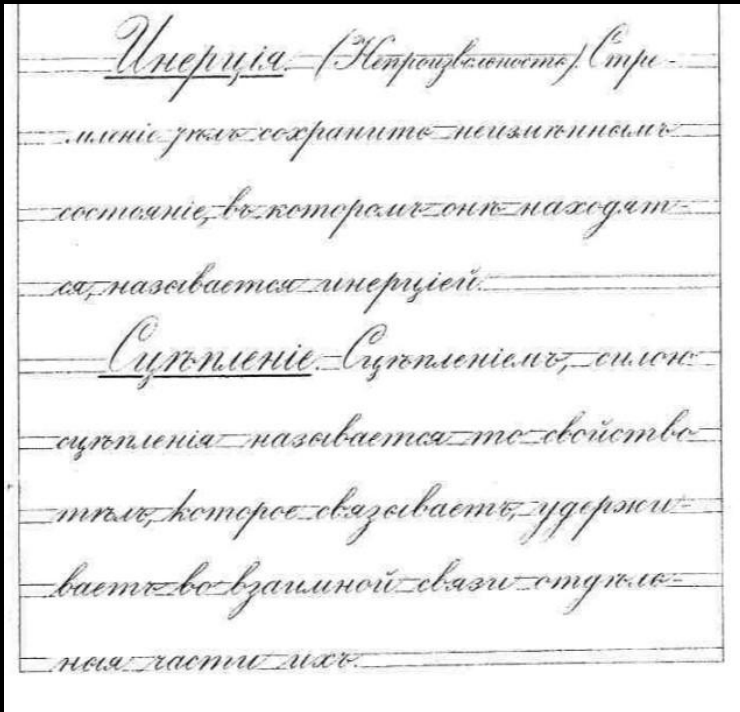 Инерція. (Непроизвольность). Стре-
мленіе тѣлъ сохранить неизмѣннымъ
состояніе, въ которомъ онѣ находят-
ся, называется инерціей.
Сцѣпленіе. Сцѣпленіемъ, силою
сцѣпленія называется то свойство
тѣлъ, которое связываетъ, удержи-
ваетъ во взаимной связи отдѣль-
ныя части ихъ.